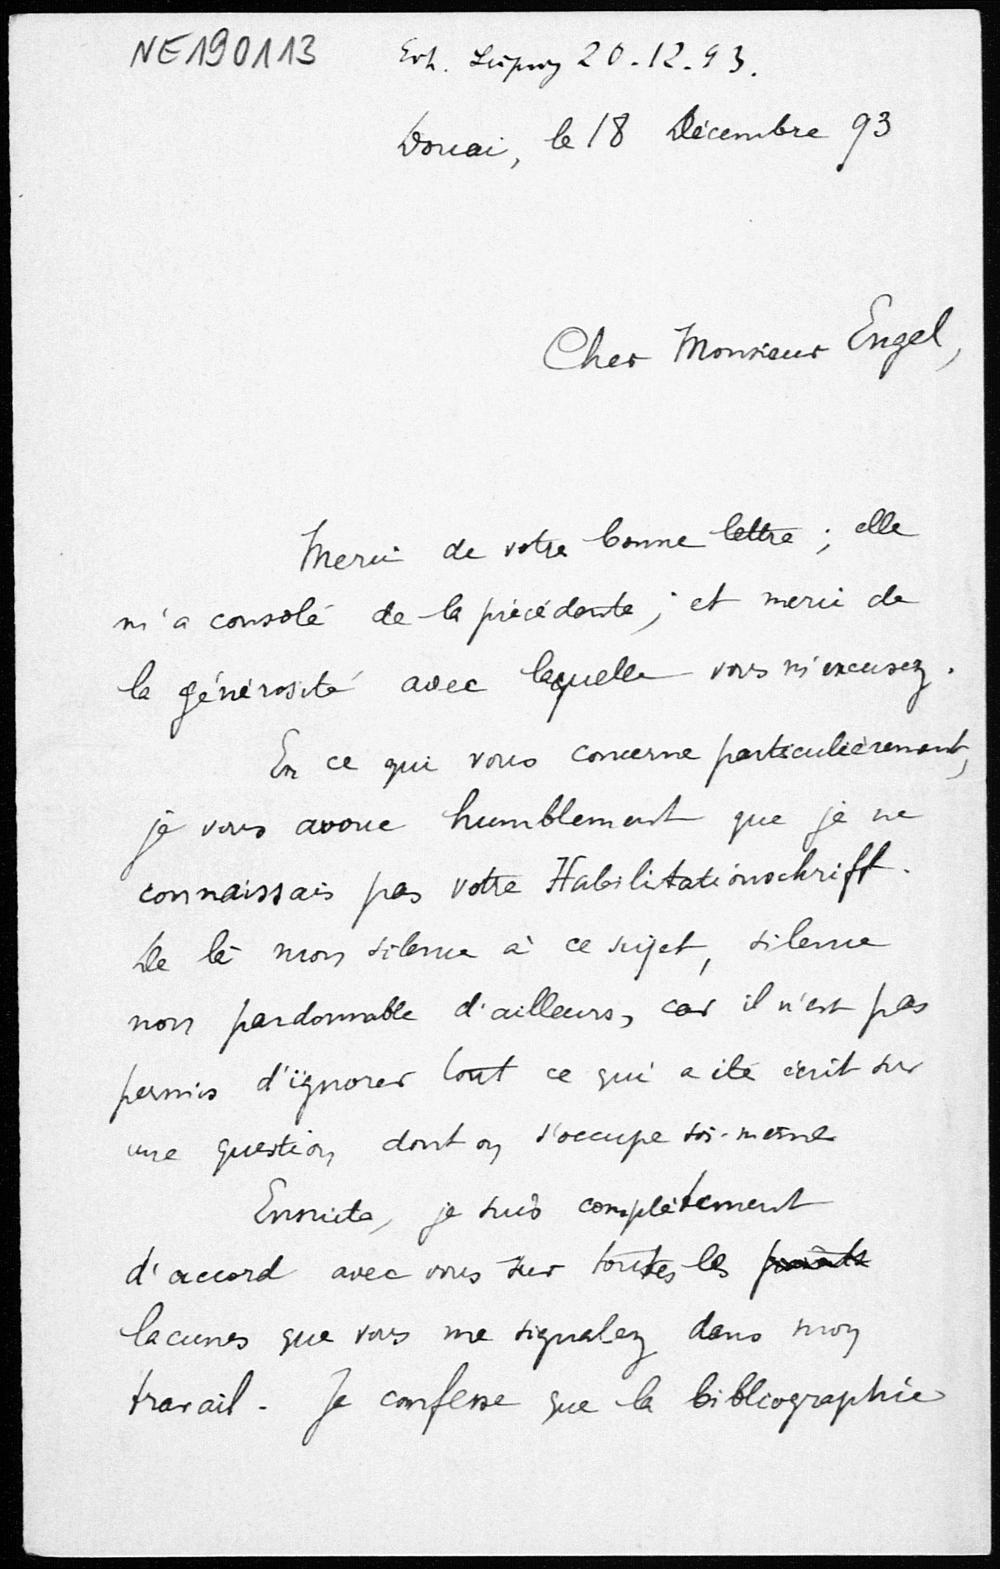 NE190113
Erh. Leipzig 20.12.93.
Douai, le 18 Décembre 93
Cher Monsieur Engel,
Merci de votre bonne lettre ; elle
m'a consolé de la précédente ; et merci de
la générosité avec laquelle vous m'excusez.
En ce qui vous concerne particulièrement,
je vous avoue humblement que je ne
connaissais pas votre Habilitationschrift.
De là mon silence à ce sujet, silence
non pardonnable d'ailleurs, car il n'est pas
permis d'ignorer tout ce qui a été écrit sur
une question dont on s'occupe soi-même
Ensuite, je suis complètement
d'accord avec vous sur toutes les points
lacunes que vous me signalez dans mon
travail. Je confesse que la bibliographie